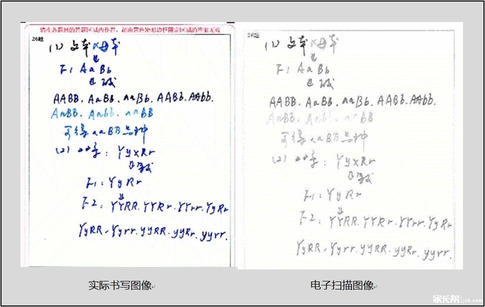 请在各题目的答题区域内作答，超出黑色矩形边框限定区域的答案无效
26题
(1) 父本×母本
↓
F1: AaBb
AABB. AaBB. aaBb. AABb. AAbb.
AaBb. Aabb. aaBB
可得aaBB品种
(2) YyxRr
F1: YyRr
F2: YYRR. YYRr. YYrr. YyRr
YyRR. Yyrr. yyRR. yyRr. yyrr.
26题
(1) 父本×母本
↓
F1: AaBb
AABB. AaBB. aaBb. AABb. AAbb.
AaBb. Aabb. aaBB
可得aaBB品种
(2) YyxRr
F1: YyRr
F2: YYRR. YYRr. YYrr. YyRr
YyRR. Yyrr. yyRR. yyRr. yyrr.
实际书写图像
电子扫描图像
家长帮